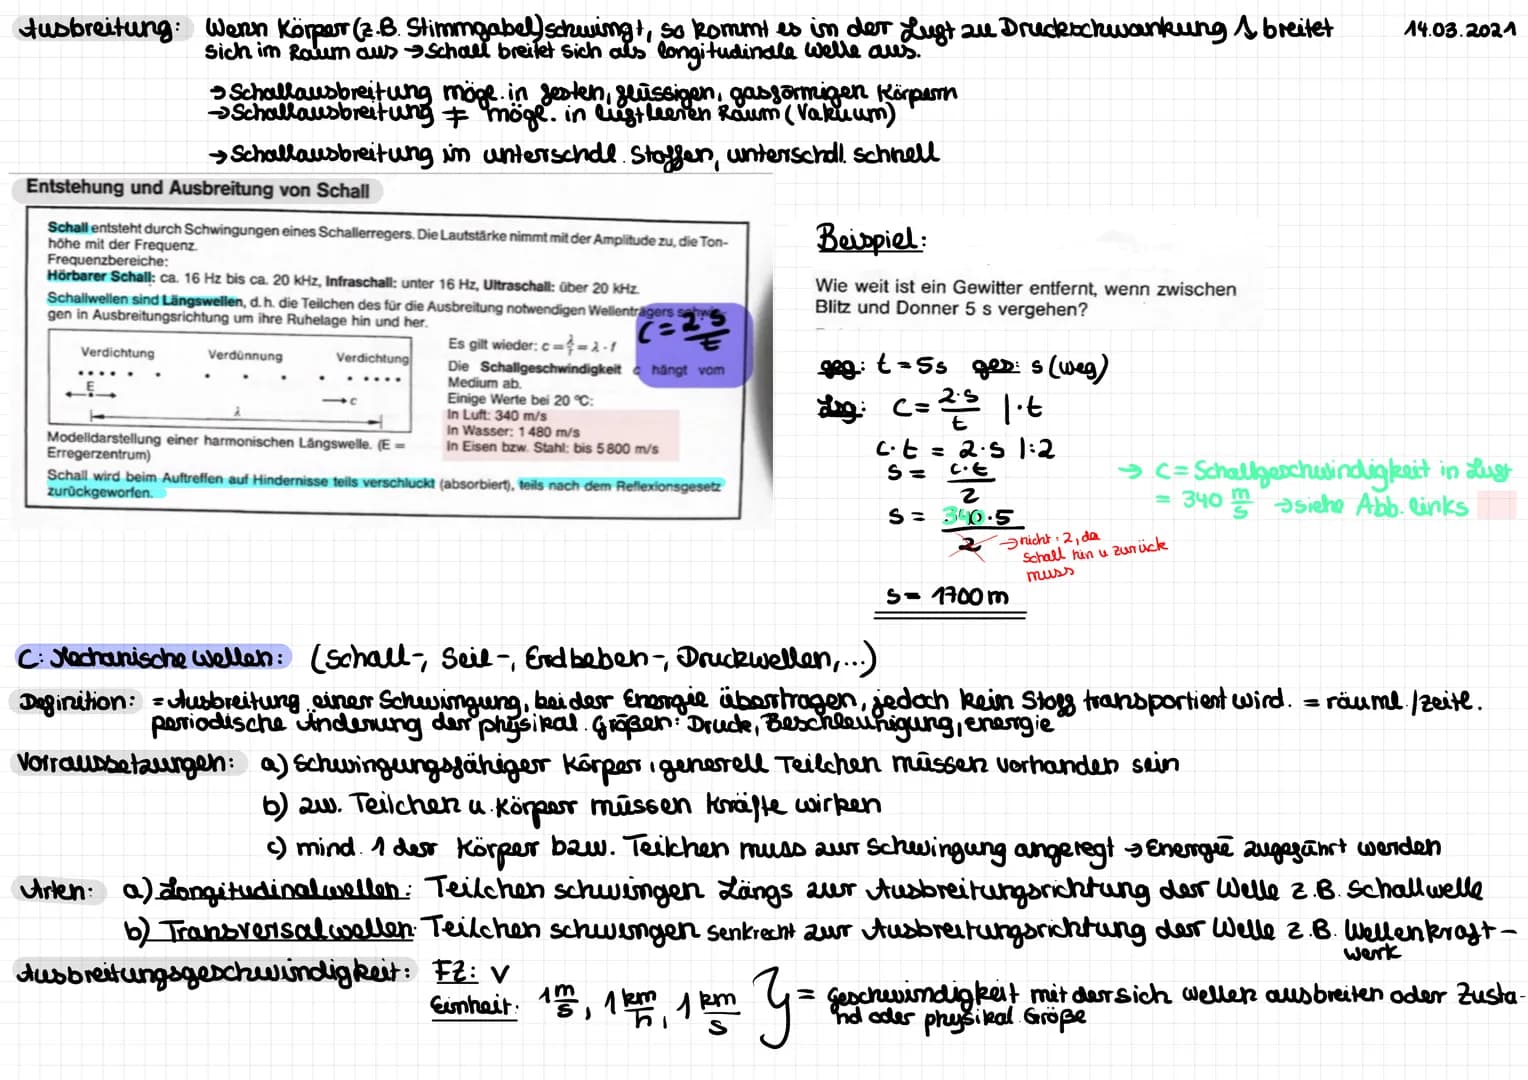 Ausbreitung: Wenn Körper (z.B. Stimmgabel) schwingt, so kommt es in der Luft zu Druckschwankung & breitet 14.03.2021
sich im Raum aus → Schall breitet sich als longitudinale Welle aus.
→ Schallausbreitung mögl. in festen, flüssigen, gasförmigen Körpern
→ Schallausbreitung ≠ mögl. in luftleeren Raum (Vakuum)
→ Schallausbreitung in unterschdl. Stoffen, unterschdl. schnell
Entstehung und Ausbreitung von Schall
Schall entsteht durch Schwingungen eines Schallerregers. Die Lautstärke nimmt mit der Amplitude zu, die Ton-
höhe mit der Frequenz.
Frequenzbereiche:
Hörbarer Schall: ca. 16 Hz bis ca. 20 kHz, Infraschall: unter 16 Hz, Ultraschall: über 20 kHz.
Schallwellen sind Längswellen, d. h. die Teilchen des für die Ausbreitung notwendigen Wellenträgers schwin-
gen in Ausbreitungsrichtung um ihre Ruhelage hin und her.
c = 2·s/t
Verdichtung Verdünnung Verdichtung
E
c
λ
Modelldarstellung einer harmonischen Längswelle. (E =
Erregerzentrum)
Es gilt wieder: c = λ/T = λ · f
Die Schallgeschwindigkeit c hängt vom
Medium ab.
Einige Werte bei 20 °C:
In Luft: 340 m/s
In Wasser: 1 480 m/s
In Eisen bzw. Stahl: bis 5 800 m/s
Schall wird beim Auftreffen auf Hindernisse teils verschluckt (absorbiert), teils nach dem Reflexionsgesetz
zurückgeworfen.
Beispiel:
Wie weit ist ein Gewitter entfernt, wenn zwischen
Blitz und Donner 5 s vergehen?
geg: t = 5s ges: s (weg)
Lsg: c = 2·s/t |·t
c·t = 2·s |:2
s = c·t/2
s = 340·5/2
→ nicht :2, da
Schall hin u zurück
muss
s = 1700m
→ c = Schallgeschwindigkeit in Luft
= 340 m/s → siehe Abb. links
C: Mechanische Wellen: (Schall-, Seil-, Erdbeben-, Druckwellen,...)
Definition: = Ausbreitung einer Schwingung, bei der Energie übertragen, jedoch kein Stoff transportiert wird. = räuml./zeitl.
periodische Änderung der physikal. Größen: Druck, Beschleunigung, energie
Vorraussetzungen: a) schwingungsfähiger Körper, generell Teilchen müssen vorhanden sein
b) zw. Teilchen u. Körper müssen Kräfte wirken
c) mind. 1 der Körper bzw. Teilchen muss zur Schwingung angeregt → Energie zugeführt werden
Arten: a) Longitudinalwellen: Teilchen schwingen Längs zur Ausbreitungsrichtung der Welle z.B. Schallwelle
b) Transversalwellen: Teilchen schwingen senkrecht zur Ausbreitungsrichtung der Welle z.B. Wellenkraft-
werk
Ausbreitungsgeschwindigkeit: FZ: v
Einheit: 1 m/s, 1 km/h, 1 km/s } = Geschwindigkeit mit der sich wellen ausbreiten oder Zusta-
nd oder physikal. Größe